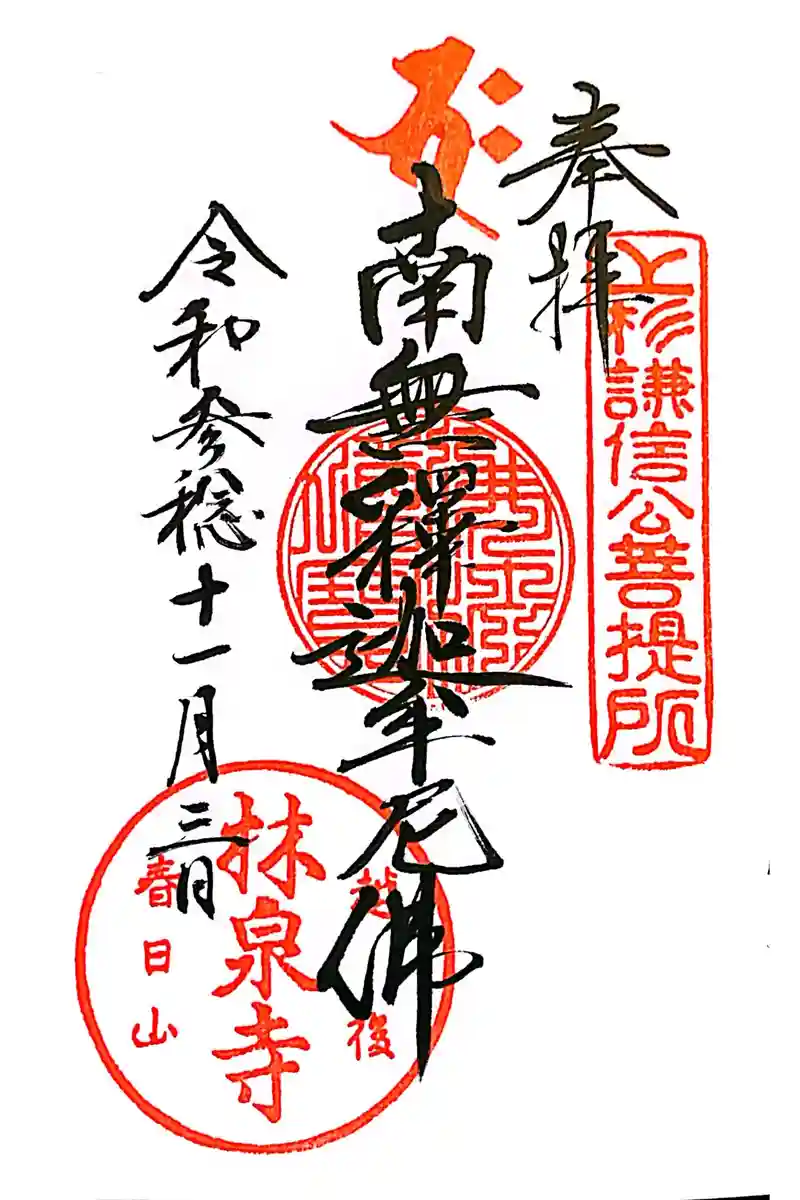 奉拝
上杉謙信公菩提所
南無釋迦牟尼佛
令和参稔十一月三日
越後
林泉寺
春日山